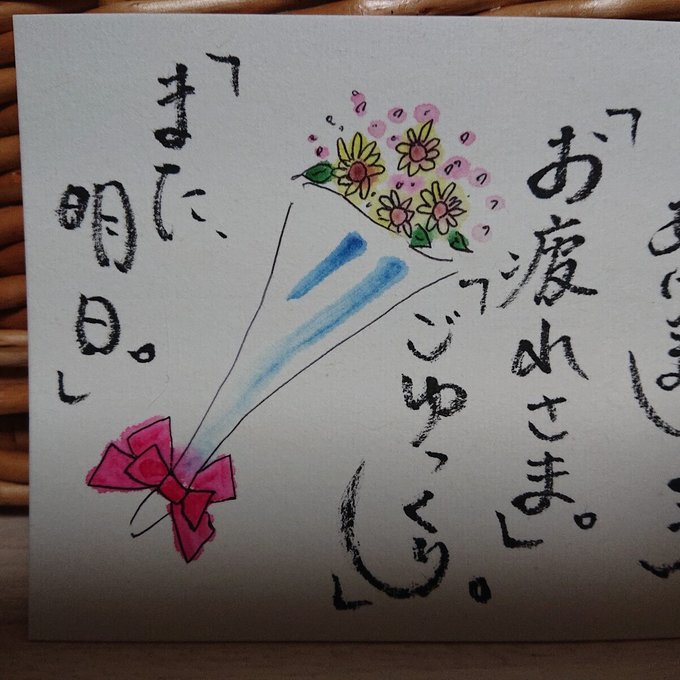 「お疲れさま。」
「ごゆっくり。」
「また、
明日。」